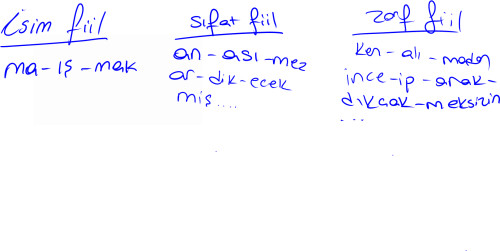 isim fiil
ma-ış-mak
sıfat fiil
an-ası-mez
ar-dik-ecek
miş....
zarf fiil
ken-alı-maden
ince-ip-arak-
dıkçak-meksizin
...